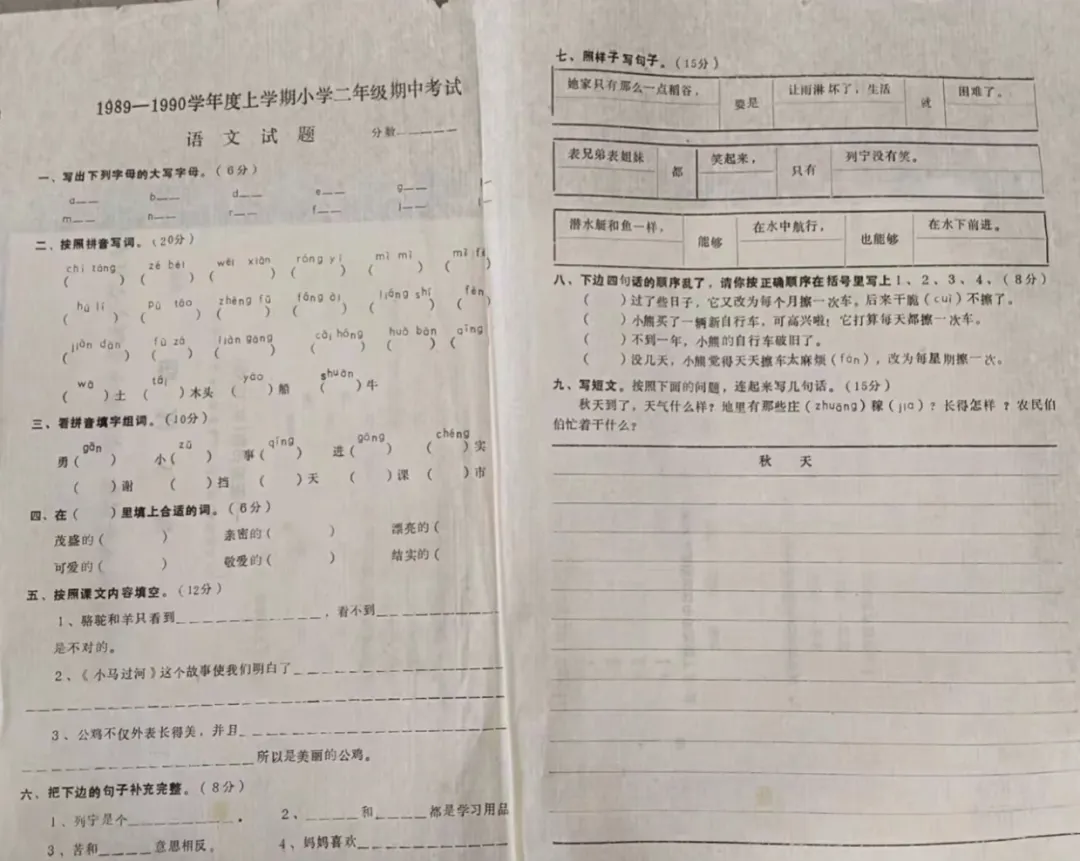 1989—1990学年度上学期小学二年级期中考试
语 文 试 题 分数
一、写出下列字母的大写字母。(6分)
a b d e g
m n r f
二、按照拼音写词。(20分)
chí táng zé bèi wéi xiǎn róng yì mì mì
( ) ( ) ( ) ( ) ( )
hú li pú táo zhèng fǔ liáng shi
( ) ( ) ( ) ( ) ( ) ( )
jiǎn dān fù zá gāng cǎi hóng qīng
( ) ( ) ( ) ( ) ( )
wā tái yáo shuǐ
( )土 ( )木头 ( )船 ( )牛
三、看拼音填字组词。(10分)
gǎn zǔ qíng gōng chéng
勇( ) 小( ) 事( ) 进( ) ( )实
( )谢 ( )挡 ( )天 ( )课 ( )市
四、在( )里填上合适的词。(6分)
茂盛的( ) 亲密的( ) 漂亮的(
可爱的( ) 敬爱的( ) 结实的(
五、按照课文内容填空。(12分)
1、骆驼和羊只看到 ，看不到
是不对的。
2、《小马过河》这个故事使我们明白了
3、公鸡不仅外表长得美，并且
所以是美丽的公鸡。
六、把下边的句子补充完整。(8分)
1、列宁是个 。 2、 和 都是学习用品
3、苦和 意思相反。 4、妈妈喜欢
七、照样子写句子。(15分)
她家只有那么一点稻谷， 要是 让雨淋坏了，生活 就 困难了。
表兄弟表姐妹 都 笑起来， 只有 列宁没有笑。
潜水艇和鱼一样， 能够 在水中航行， 也能够 在水下前进。
八、下边四句话的顺序乱了，请你按正确顺序在括号里写上1、2、3、4、(8分)
( )过了些日子，它又改为每个月擦一次车。后来干脆(cuì)不擦了。
( )小熊买了一辆新自行车，可高兴啦！它打算每天都擦一次车。
( )不到一年，小熊的自行车破旧了。
( )没几天，小熊觉得天天擦车太麻烦(fán)，改为每星期擦一次。
九、写短文。按照下面的问题，连起来写几句话。(15分)
秋天到了，天气什么样？地里有那些庄(zhuāng)稼(jia)？长得怎样？农民伯
伯忙着干什么？
秋 天